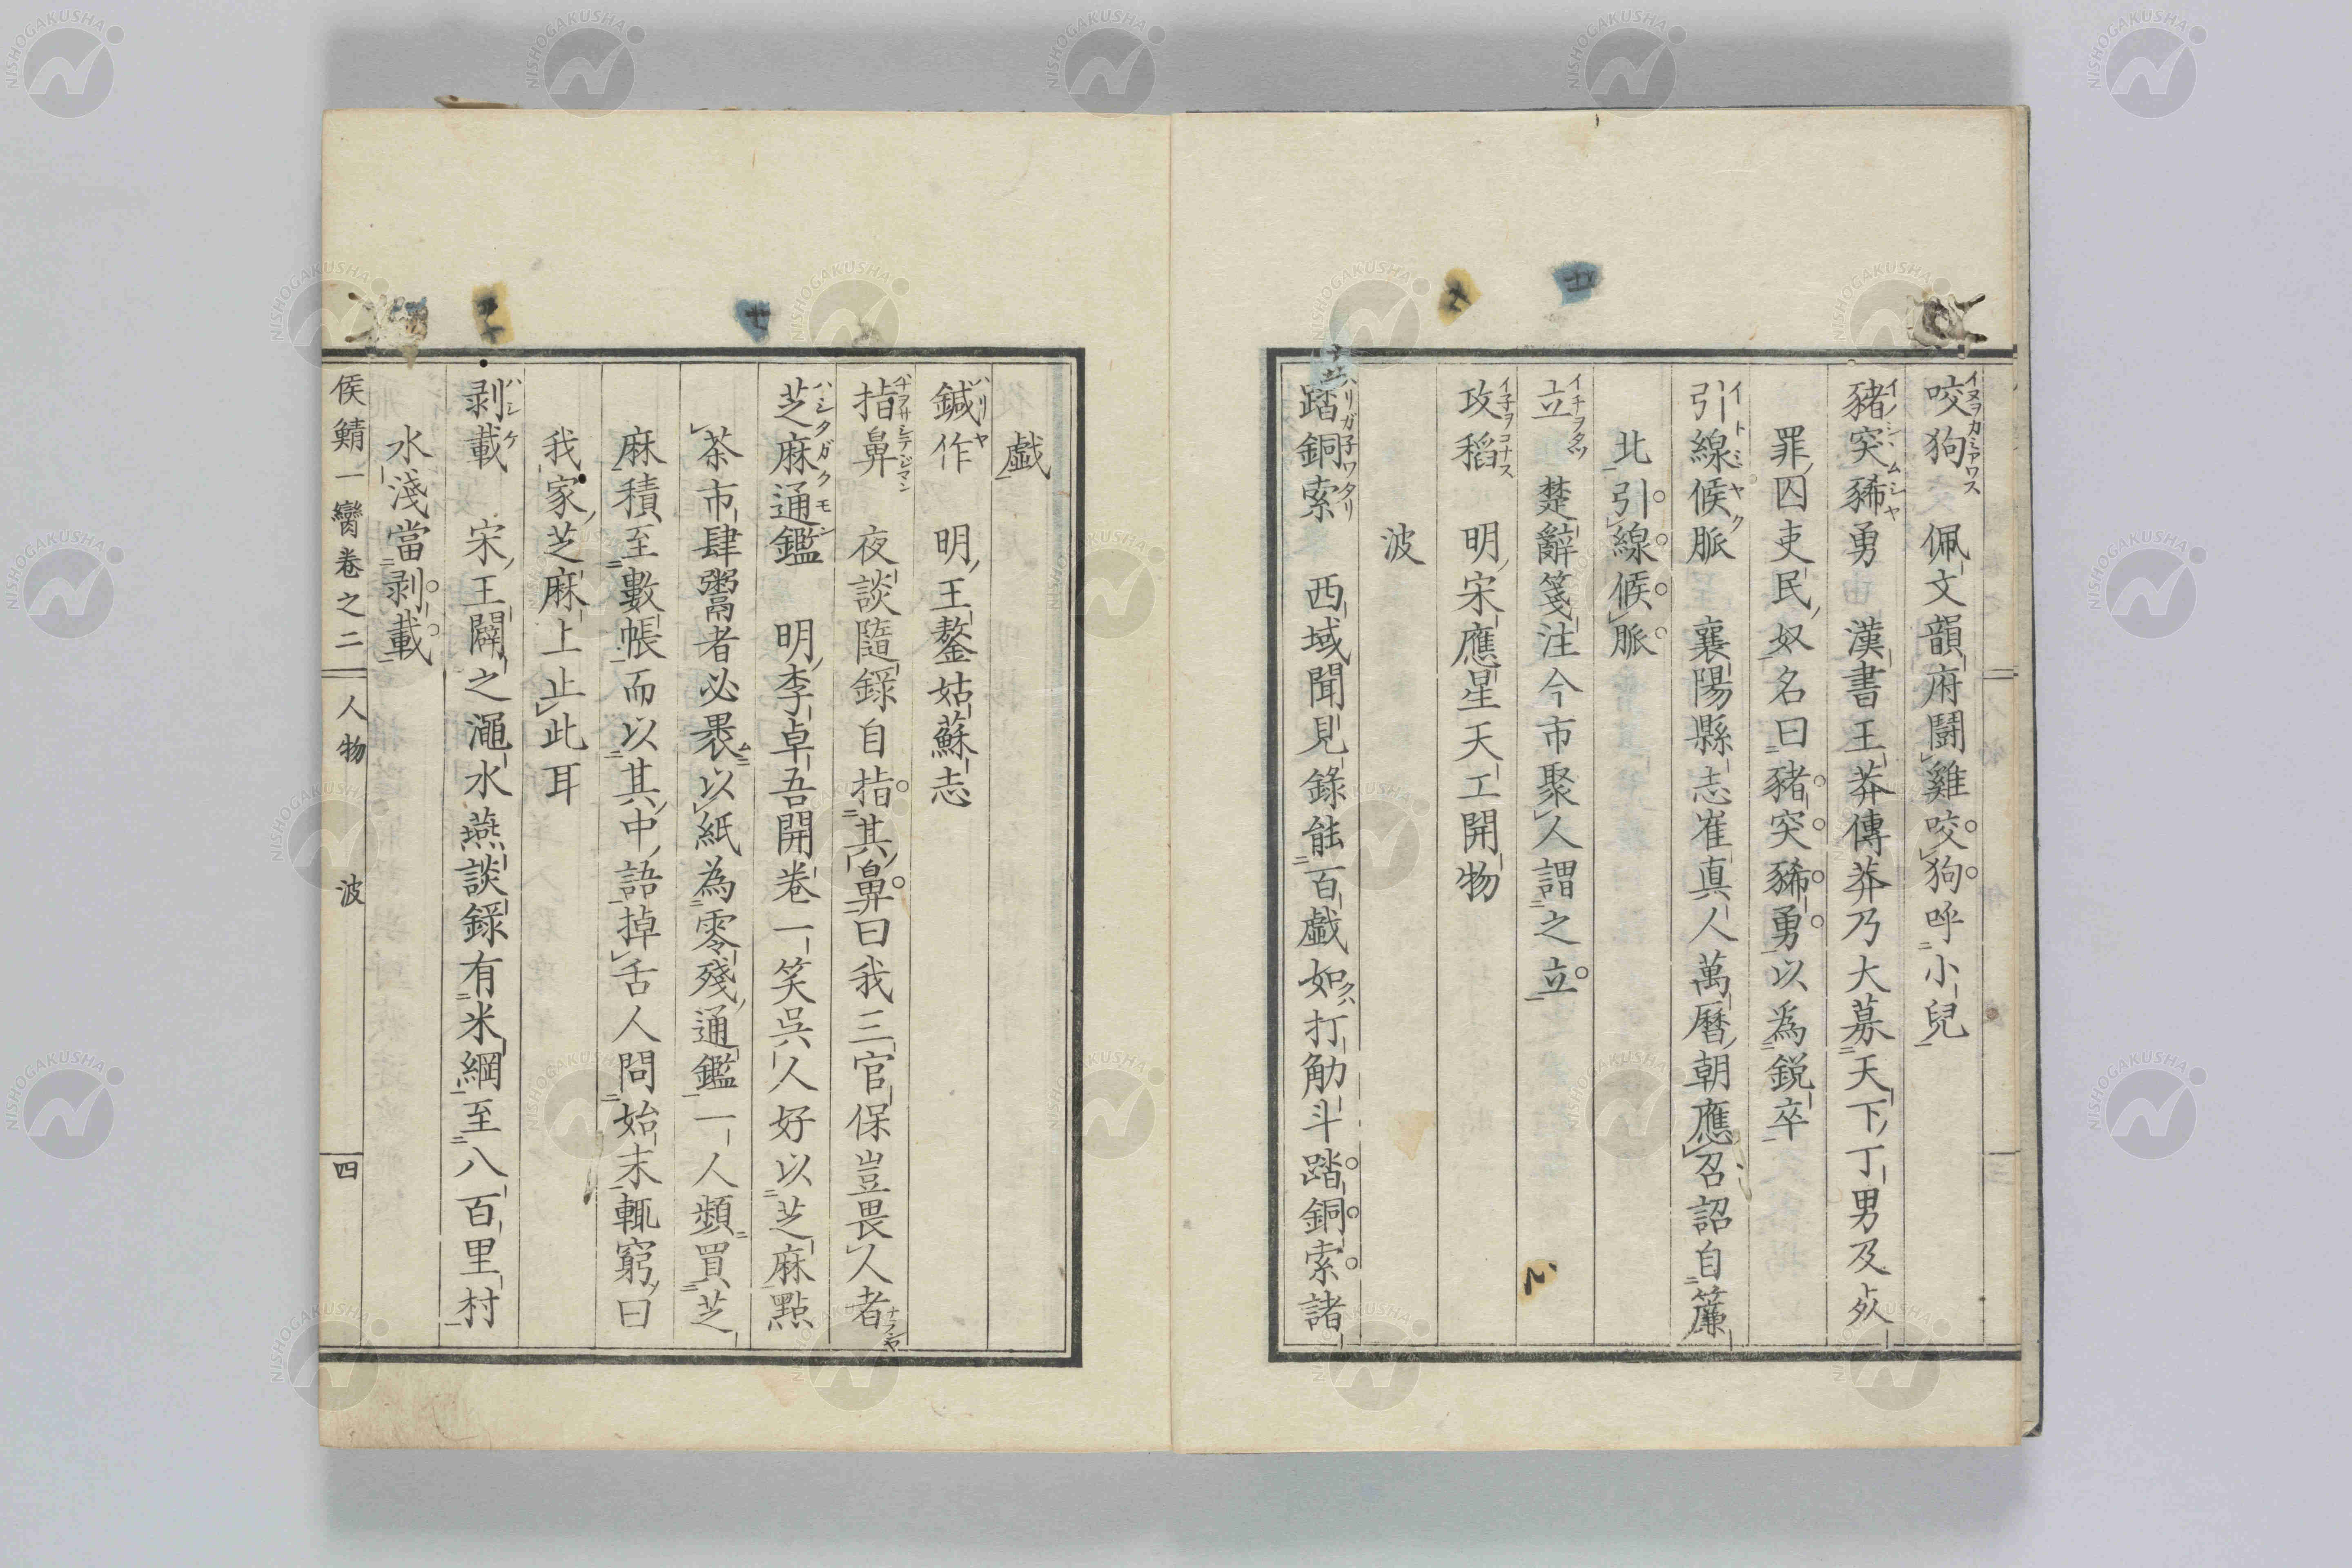 咬狗 佩文韻府鬪雞咬狗呼小兒
豬突豨勇 漢書王莽傳莽乃大募天下丁男及
罪囚吏民奴名曰豬突豨勇以為銳卒
引線候脈 襄陽縣志崔真人萬曆朝應召詔自簾
北引線候脈
立 楚辭箋注今市聚人謂之立
攻稻 明宋應星天工開物
波
踏銅索 西域聞見錄能百戲如打觔斗踏銅索諸
戲
鍼作 明王鏊姑蘇志
指鼻 夜談隨錄自指其鼻曰我三官保豈畏人者
芝麻通鑑 明李卓吾開卷一笑吳人好以芝麻點
茶市肆鬻者必裹以紙為零殘通鑑一人頻買芝
麻積至數帳而以其中語掉舌人問始末輒窮曰
我家芝麻上止此耳
剥載 宋王闢之澠水燕談錄有米綱至八百里村
水淺當剥載
侯鯖一臠卷之二 人物 波 四